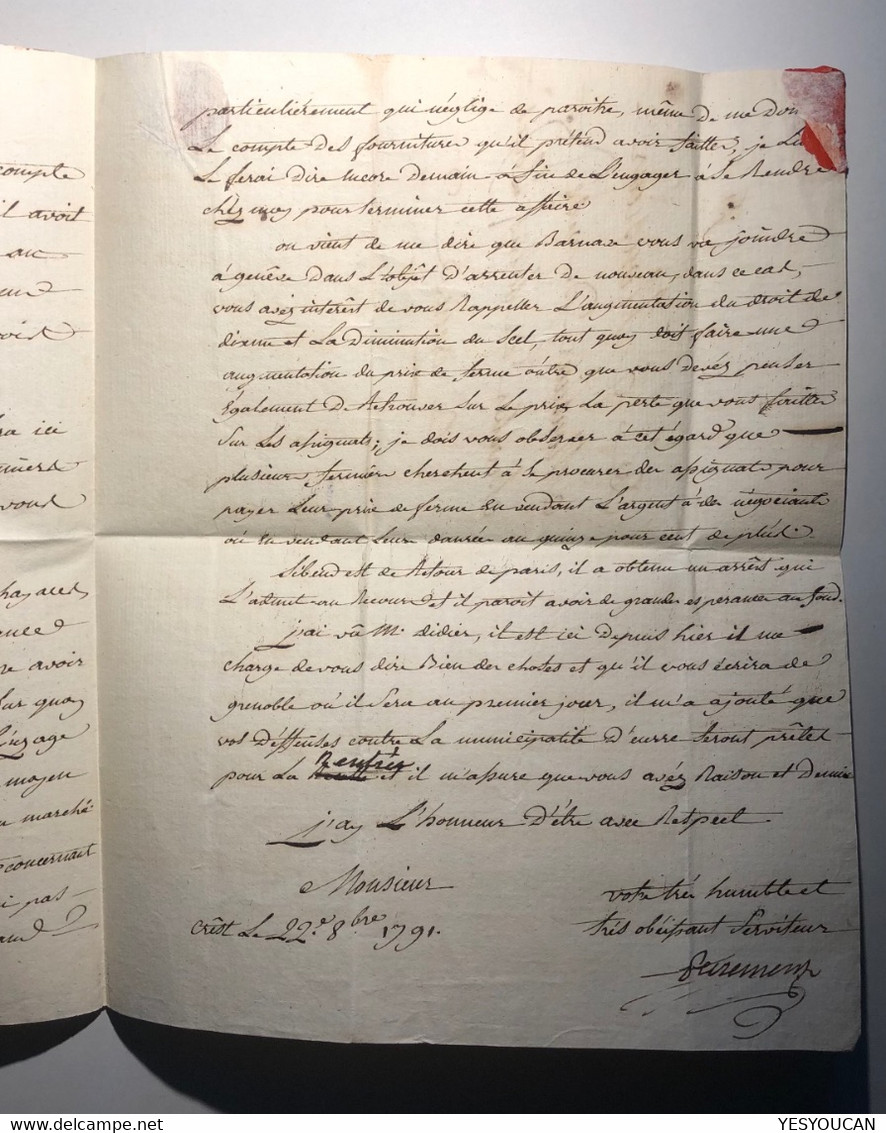 compte
il avoit
au
ra ici
vous
ence
re avoir
sur quoy
L'uzage
moyen
u marché
concernant
i pas
particulièrement qui néglige de paroitre, même de me don
Le compte des fournitures qu'il prétend avoir faittes, je Lui
Le ferai dire encore demain à fin de L'engager à se Rendre
chéz moy pour terminer cette affaire
on vient de me dire que Barnave vous va joindre
à genève dans L'objet d'arrenter de nouveau, dans ce cas,
vous avéz intérêt de vous Rappeller L'augmentation du droit de
dixme et La Diminution du Scel, tout quoy doit faire une
augmentation du prix de ferme outre que vous devéz penser
également de Retrouver sur Le prix La perte que vous faittes
sur Les assignats; je dois vous observer à cet égard que
plusieurs fermiers cherchent à se procurer des assignats pour
payer Leur prix de ferme en vendant L'argent à des négociants
où en vendant Leurs danrées au quinze pour cent de plus.
est de Retour de paris, il a obtenu un arrêts qui
L'admet au Recours et il paroit avoir de grandes esperances au fond.
j'ai vû Mr. didier, il est ici depuis hier il me
charge de vous dire Bien des choses et qu'il vous écrira de
grenoble où il sera au premier jour, il m'a ajouté que
vos deffenses contre La municipalité d'eurre seront prêtes
pour La Rentrée et il m'assure que vous avéz Raison et demie
j'ay L'honneur d'être avec Respect
Monsieur
votre très humble et
très obéissant serviteur
crêst Le 22e. 8bre 1791.
YESYOUCAN